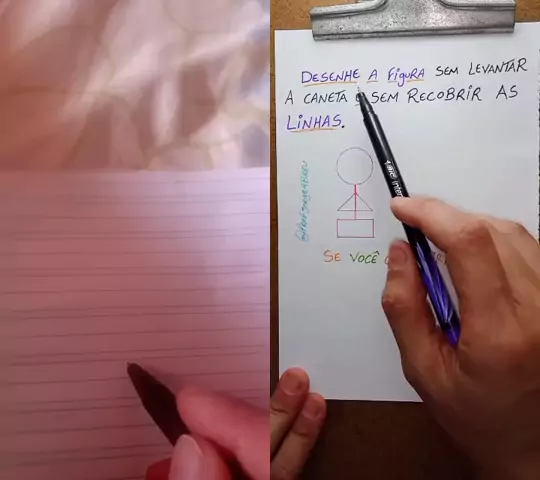 DESENHE A FIGURA SEM LEVANTAR
A CANETA SEM RECOBRIR AS
LINHAS.
SE VOCÊ